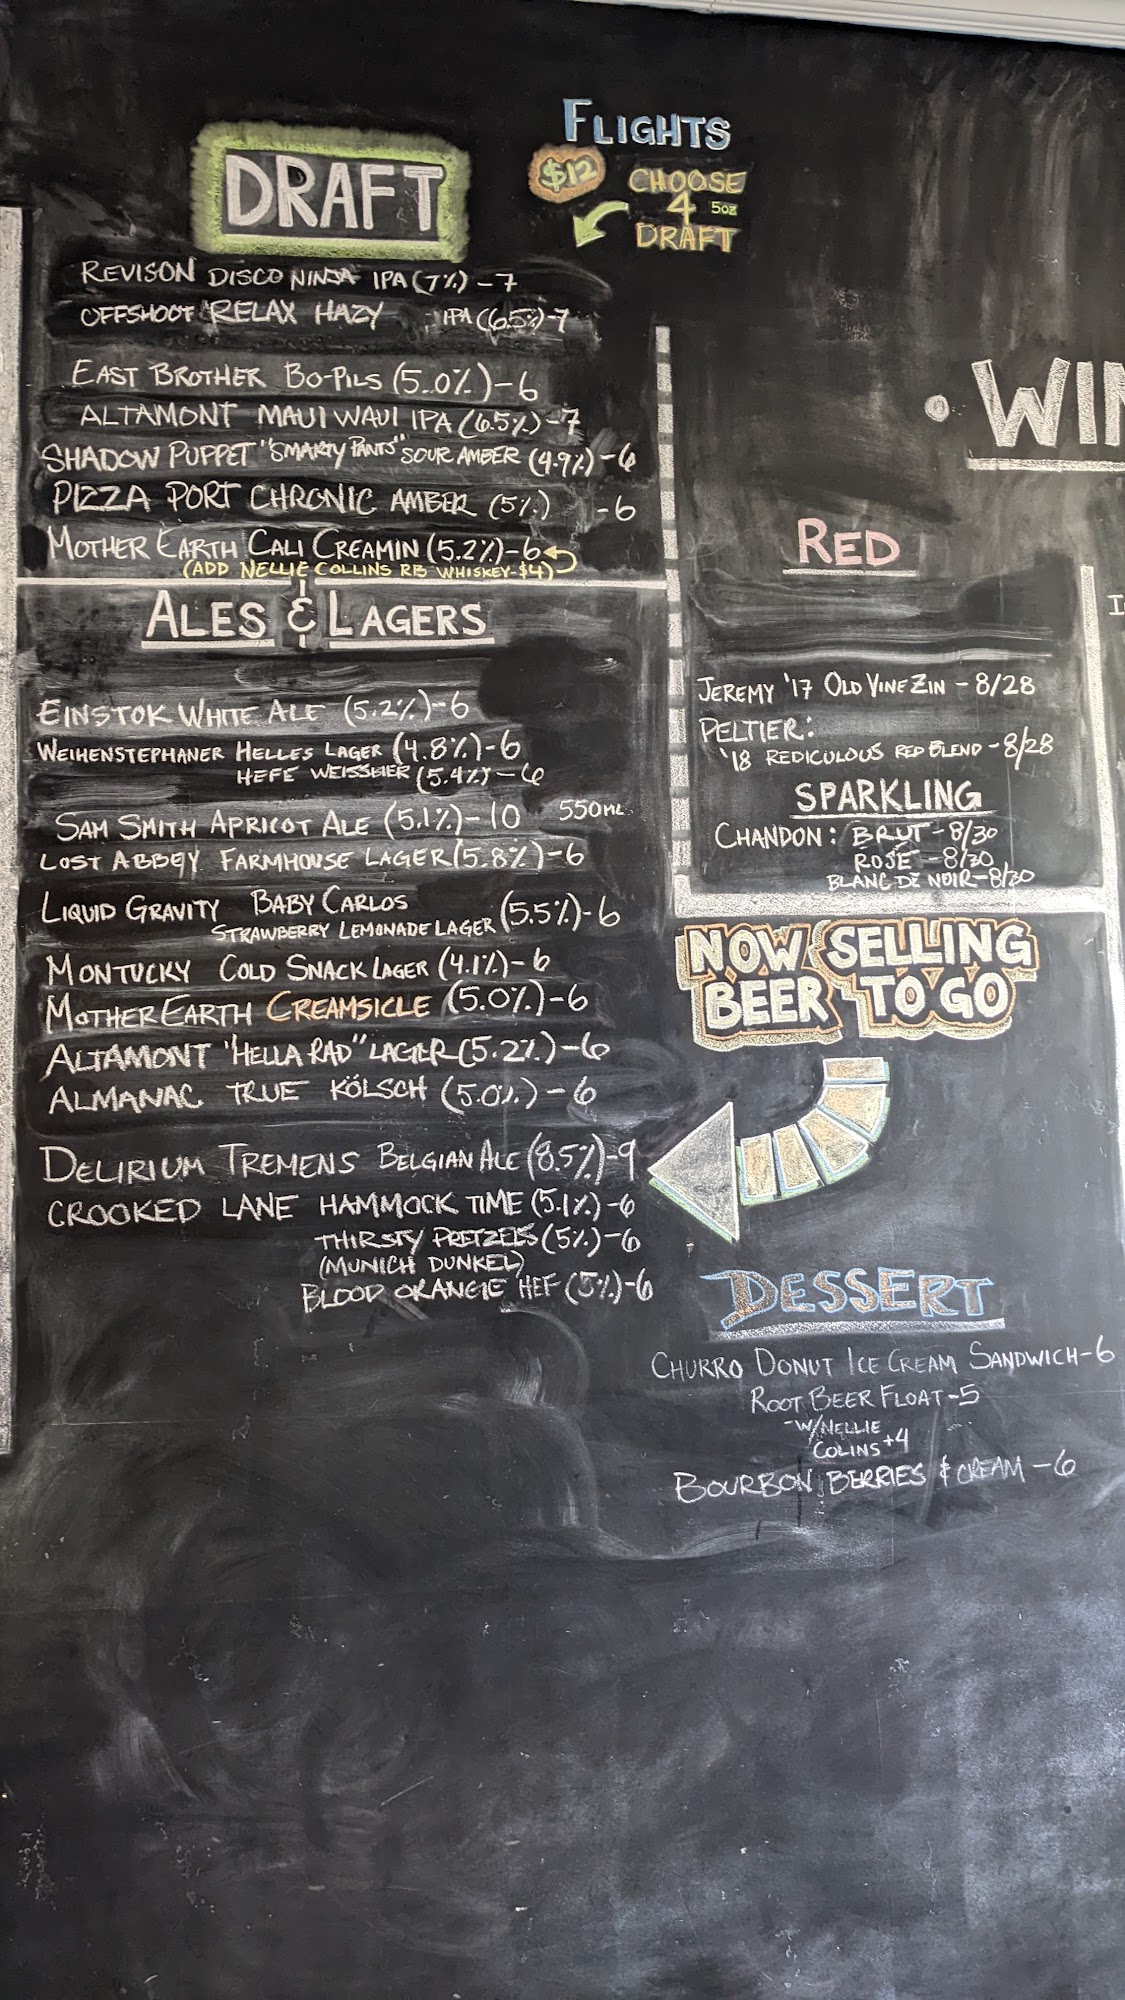 DRAFT
REVISON DISCO NINJA IPA (7%) - 7
OFFSHOOT RELAX HAZY IPA (6.5%) - 7
EAST BROTHER BO-PILS (5.0%) - 6
ALTAMONT MAUI WAUI IPA (6.5%) - 7
SHADOW PUPPET "SMARTY PANTS" SOUR AMBER (4.9%) - 6
PIZZA PORT CHRONIC AMBER (5%) - 6
MOTHER EARTH CALI CREAMIN (5.2%) - 6
(ADD NELLIE COLLINS RB WHISKEY - $4)
FLIGHTS
$12
CHOOSE
4 5oz
DRAFT
ALES & LAGERS
EINSTOK WHITE ALE (5.2%) - 6
WEIHENSTEPHANER HELLES LAGER (4.8%) - 6
HEFE WEISSBIER (5.4%) - 6
SAM SMITH APRICOT ALE (5.1%) - 10 550ML
LOST ABBEY FARMHOUSE LAGER (5.8%) - 6
LIQUID GRAVITY BABY CARLOS
STRAWBERRY LEMONADE LAGER (5.5%) - 6
MONTUCKY COLD SNACK LAGER (4.1%) - 6
MOTHER EARTH CREAMSICLE (5.0%) - 6
ALTAMONT "HELLA RAD" LAGER (5.2%) - 6
ALMANAC TRUE KÖLSCH (5.0%) - 6
DELIRIUM TREMENS BELGIAN ALE (8.5%) - 9
CROOKED LANE HAMMOCK TIME (5.1%) - 6
THIRSTY PRETZELS (5%) - 6
(MUNICH DUNKEL)
BLOOD ORANGE HEF (5%) - 6
• WIN
RED
JEREMY '17 OLD VINE ZIN - 8/28
PELTIER:
'18 REDICULOUS RED BLEND - 8/28
SPARKLING
CHANDON: BRUT - 8/30
ROSÉ - 8/30
BLANC DE NOIR - 8/30
NOW SELLING
BEER TO GO
DESSERT
CHURRO DONUT ICE CREAM SANDWICH - 6
ROOT BEER FLOAT - 5
- W/NELLIE
COLINS +4
BOURBON BERRIES & CREAM - 6